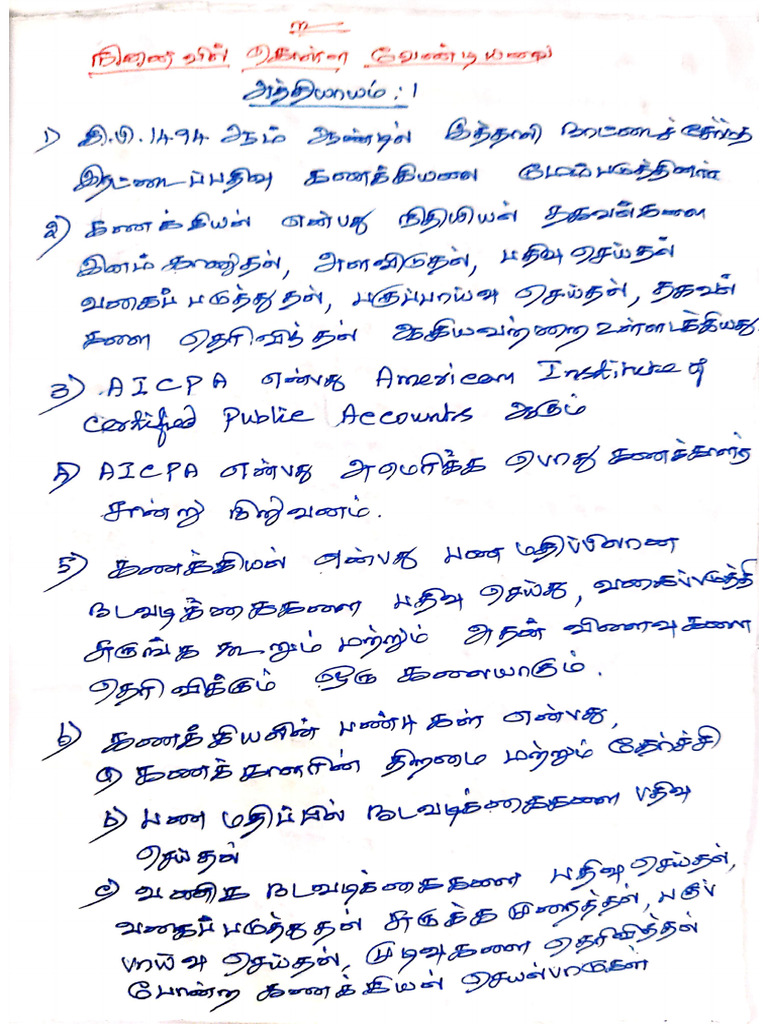 உ
நினைவில் கொள்ள வேண்டியவை
அத்தியாயம் : 1
1) கி.பி.1494 ஆம் ஆண்டில் இத்தாலி நாட்டைச் சேர்ந்த
இரட்டைப்பதிவு கணக்கியலை மேம்படுத்தினர்
2) கணக்கியல் என்பது நிதியியல் தகவல்களை
இனம் காணுதல், அளவிடுதல், பதிவு செய்தல்
வகைப் படுத்துதல், பகுப்பாய்வு செய்தல், தகவல்
களை தெரிவித்தல் ஆகியவற்றை உள்ளடக்கியது.
3) AICPA என்பது American Institute of
Certified Public Accounts ஆகும்
4) AICPA என்பது அமெரிக்க பொது கணக்காளர்
சான்று நிறுவனம்.
5) கணக்கியல் என்பது பண மதிப்பிலான
நடவடிக்கைகளை பதிவு செய்து, வகைப்படுத்தி
சுருங்க கூறும் மற்றும் அதன் விளைவுகளை
தெரிவிக்கும் ஒரு கலையாகும்.
6) கணக்கியலின் பண்புகள் என்பது,
a) கணக்காளரின் திறமை மற்றும் தேர்ச்சி
b) பண மதிப்பில் நடவடிக்கைகளை பதிவு
செய்தல்
c) வணிக நடவடிக்கைகளை பதிவு செய்தல்,
வகைப் படுத்துதல் சுருக்க முரைத்தல், பகுப்
பாய்வு செய்தல், முடிவுகளை தெரிவித்தல்
போன்ற கணக்கியல் செயல்பாடுகள்